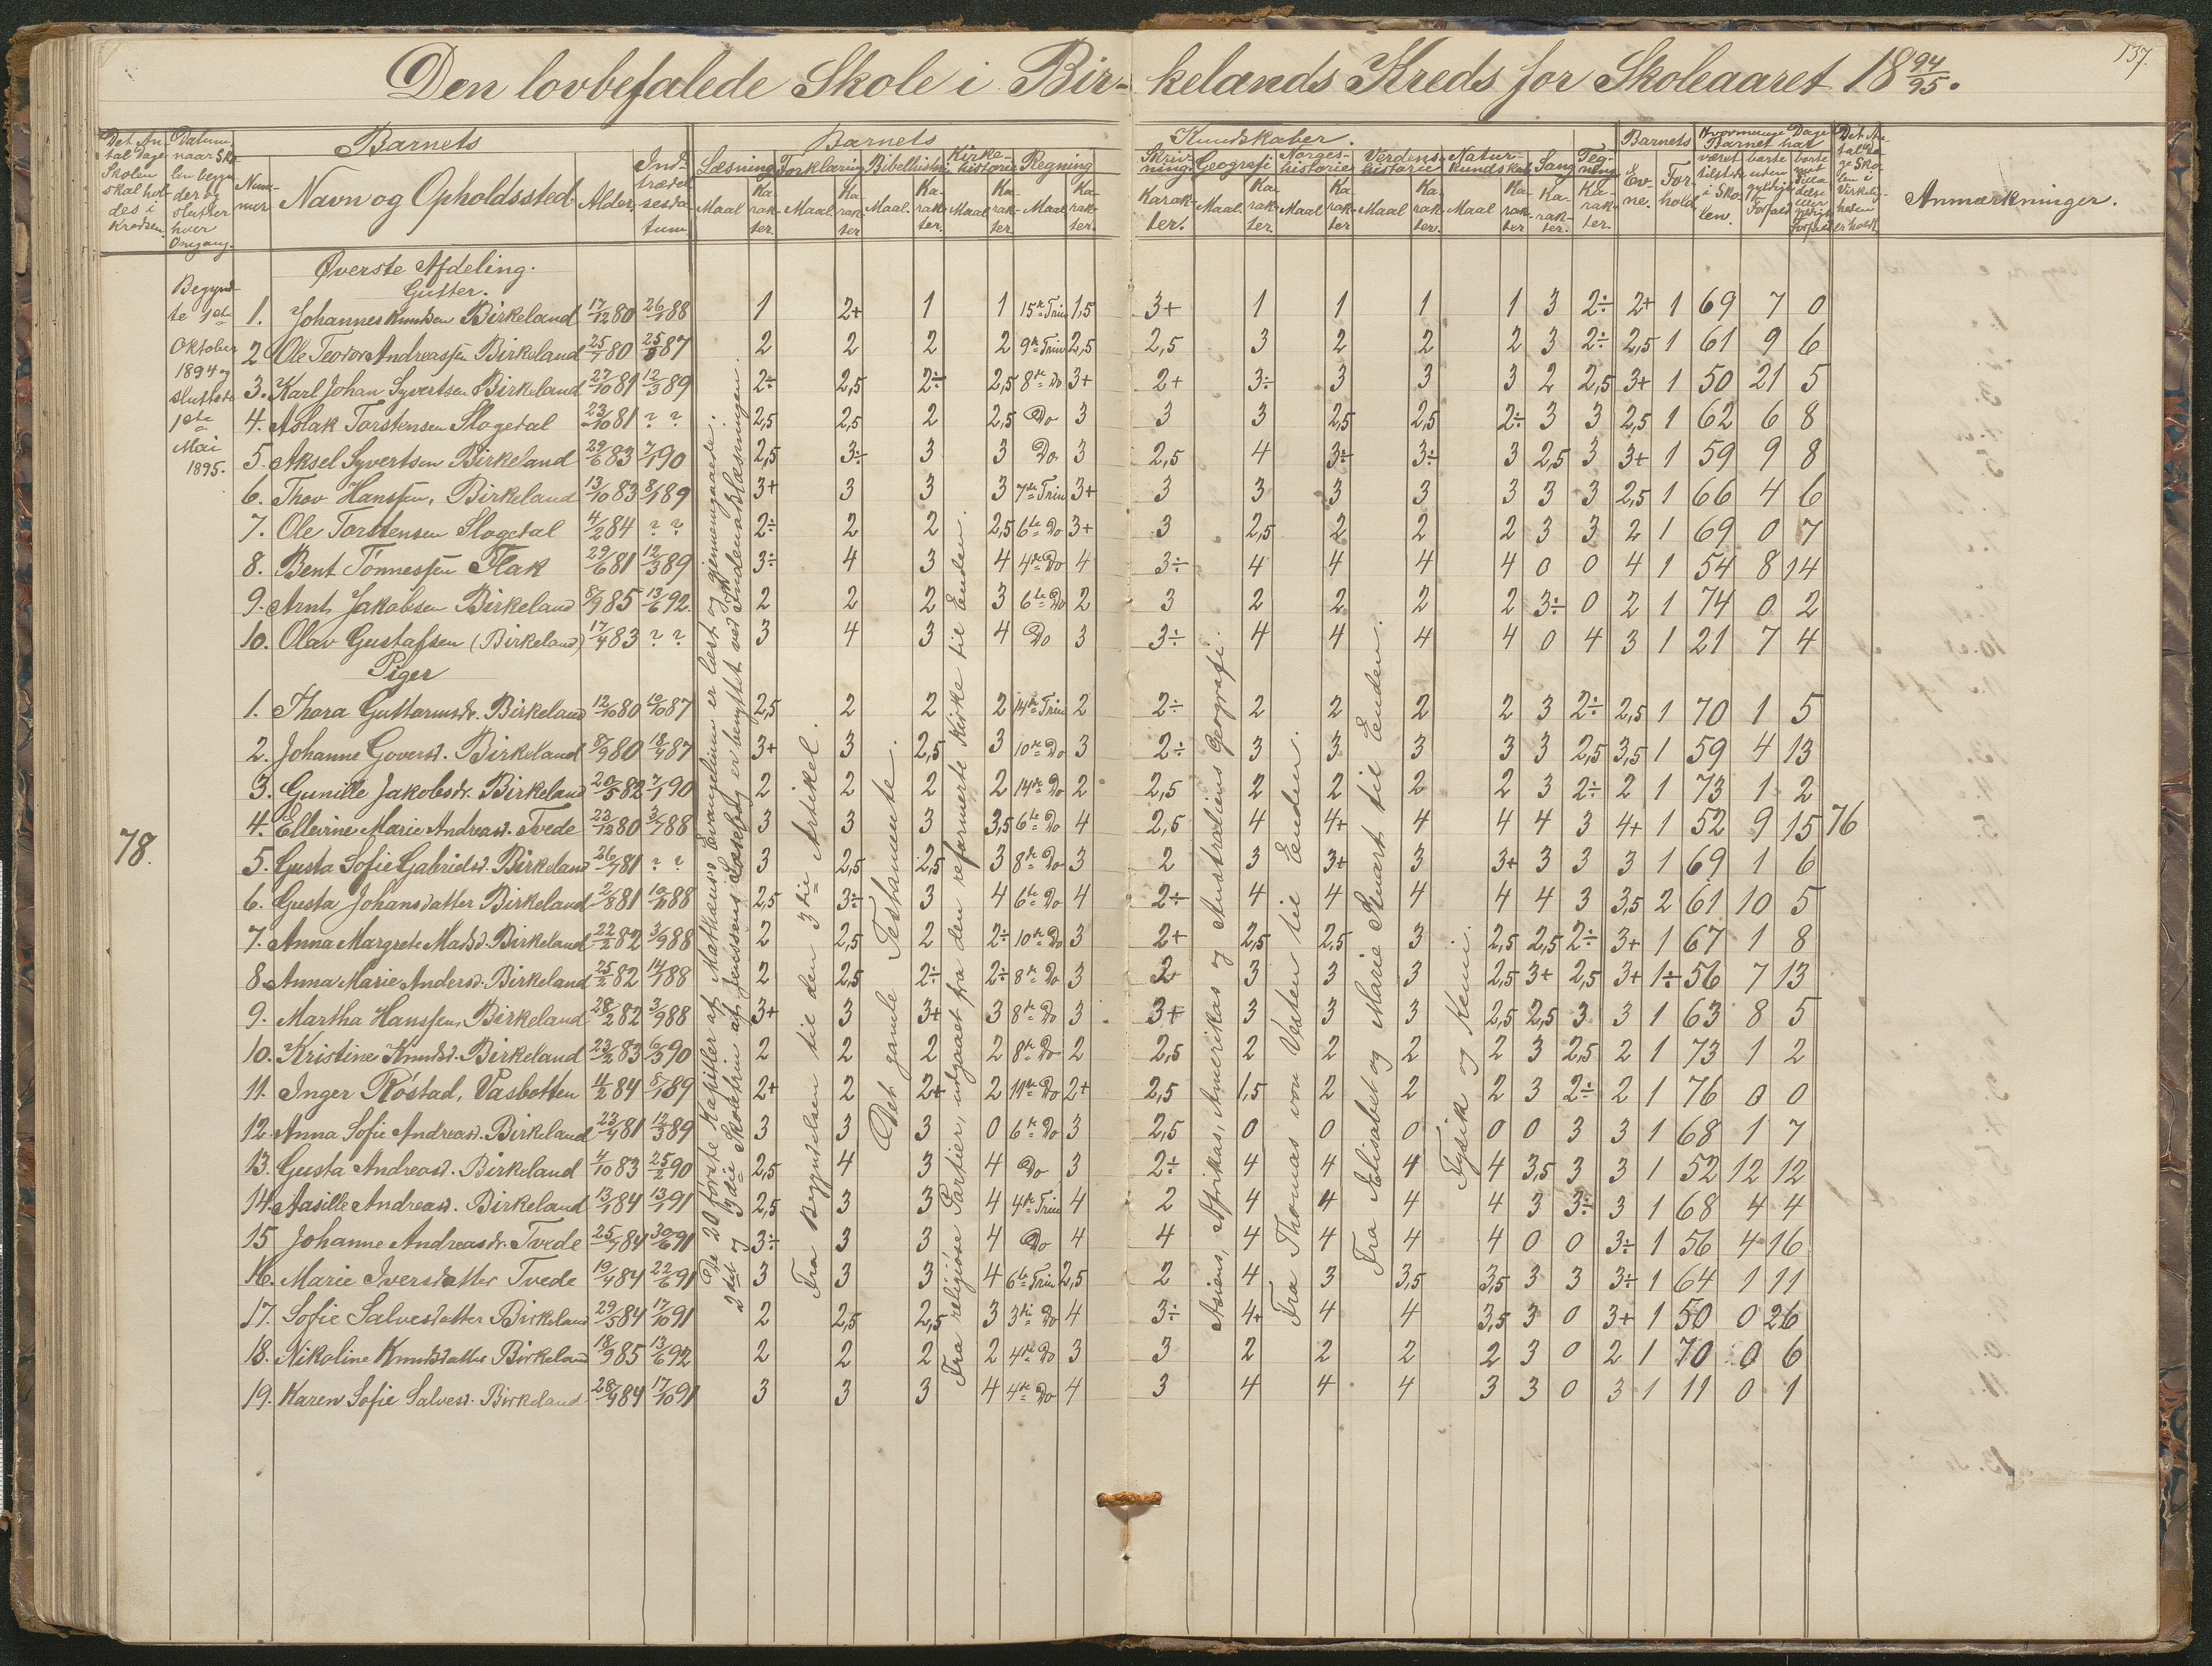 Den lovbefalede Skole i Bir- kelands Kreds for Skoleaaret 18 94/95.
137.
Det An tal Dage Skolen skal hol des i Kredsen.
Datum naar Sko len begyn der og slutter hver Omgang.
Barnets
Num- mer
Navn og Opholdssted.
Alder.
Ind- trædel sesda- tum.
Barnets
Kundskaber.
Læsning Forklaring Bibelhistorie Kirke- historie Regning
Maal Ka- rak- ter. Maal Ka- rak- ter Maal. Ka- rak- ter. Maal Ka- rak- ter. Maal Ka- rak- ter.
Skriv- ning Geografi Norges- historie Verdens historie Natur- kundskab Sang Teg- ning
Karak- ter. Maal. Ka- rak- ter. Maal Ka- rak- ter Maal Ka- rak- ter. Maal Ka- rak- ter Ka- rak- ter. Ka- rak- ter.
Barnets
Ev- ne. For- hold
Hvormange Dage Barnet har
været tilstede i Sko- len.
borte uden gyldigt Forfald
Anmærkninger.
Begynd- te 1ste Oktober 1894 og sluttede 1ste Mai 1895.
Øverste Afdeling.
Gutter.
1. Johannes Knudsen Birkeland 17/12 80 26/1 88 1 2+ 1 1 15de Trin 1,5 3+ 1 1 1 1 3 2÷ 2+ 1 69 7 0
2. Ole Teodor Andreassen Birkeland 25/1 80 25/8 87 2 2 2 2 9de Trin 2,5 2,5 3 2 2 2 3 2÷ 2,5 1 61 9 6
3. Karl Johan Syvertsen Birkeland 27/10 81 12/3 89 2÷ 2,5 2÷ 2,5 8de Do 3+ 2+ 3÷ 3 3 3 2 2,5 3+ 1 50 21 5
4. Aslak Torstensen Slogedal 23/10 81 ? ? 2,5 2,5 2 2,5 Do 3 3 3 2,5 2,5 2÷ 3 3 2,5 1 62 6 8
5. Aksel Syvertsen Birkeland 29/6 83 7/1 90 2,5 3÷ 3 3 Do 3 2,5 4 3÷ 3÷ 3 2,5 3 3+ 1 59 9 8
6. Thov Hanssen, Birkeland 13/10 83 8/1 89 3+ 3 3 3 7de Trin 3+ 3 3 3 3 3 3 3 2,5 1 66 4 6
7. Ole Torstensen Slogedal 4/2 84 ? ? 2÷ 2 2 2,5 6te Do 3+ 3 2,5 2 2 2 3 3 2 1 69 0 7
8. Bent Tönnessen Flak 29/6 81 12/3 89 3÷ 4 3 4 4de Do 4 3÷ 4 4 4 4 0 0 4 1 54 8 14
9. Arnt Jakobsen Birkeland 8/9 85 13/6 92. 2 2 2 3 6te Do 2 3 2 2 2 2 3÷ 0 2 1 74 0 2
10. Olav Gustafsen (Birkeland) 17/4 83 ? ? 3 4 3 4 Do 3 3÷ 4 4 4 4 0 4 3 1 21 7 4
Piger
1. Thora Guttormsdr. Birkeland 12/10 80 10/10 87 2,5 2 2 2 14de Trin 2 2÷ 2 2 2 2 3 2÷ 2,5 1 70 1 5
2. Johanne Goversd. Birkeland 8/9 80 18/4 87 3+ 3 2,5 3 10de Do 3 2÷ 3 3 3 3 3 2,5 3,5 1 59 4 13
3. Gunille Jakobsdr. Birkeland 20/5 82 7/1 90 2 2 2 2 14de Do 2 2,5 2 2 2 2 3 2÷ 2 1 73 1 2
78.
4. Ellevine Marie Andreasd. Tvede 23/12 80 3/7 88 3 3 3 3,5 6te Do 4 2,5 4 4+ 4 4 4 3 4+ 1 52 9 15 76
5. Gusta Sofie Gabrielsd. Birkeland 26/7 81 ? ? 3 2,5 2,5 3 8de Do 3 2 3 3+ 3 3+ 3 3 3 1 69 1 6
6. Gusta Johansdatter Birkeland 2/8 81 10/11 88 2,5 3÷ 3 4 6te Do 4 2÷ 4 4 4 4 4 3 3,5 2 61 10 5
7. Anna Margrete Madsd. Birkeland 22/2 82 3/9 88 2 2,5 2 2÷ 10de Do 3 2+ 2,5 2,5 3 2,5 2,5 2÷ 3+ 1 67 1 8
8. Anna Marie Andersd. Birkeland 25/2 82 14/7 88 2 2,5 2÷ 2÷ 8de Do 3 2 3 3 3 2,5 3+ 2,5 3+ 1÷ 56 7 13
9. Martha Hanssen, Birkeland 28/2 82 3/9 88 3+ 3 3+ 3 8de Do 3 3+ 3 3 3 2,5 2,5 3 3 1 63 8 5
10. Kristine Knudsd. Birkeland 23/2 83 6/3 90 2 2 2 2 8de Do 2 2,5 2 2 2 2 3 2,5 2 1 73 1 2
11. Inger Röstad, Vasbotten 4/2 84 8/1 89 2+ 2 2+ 2 11te Do 2+ 2,5 1,5 2 2 2 3 2÷ 2 1 76 0 0
12. Anna Sofie Andreasd. Birkeland 23/4 81 12/3 89 3 3 3 0 6te Do 3 2,5 0 0 0 0 0 3 3 1 68 1 7
13. Gusta Andreasd. Birkeland 4/10 83 25/2 90 2,5 4 3 4 Do 3 2÷ 4 4 4 4 3,5 3 3 1 52 12 12
14. Aasille Andreasd. Birkeland 13/1 84 13/1 91 2,5 3 3 4 4de Trin 4 2 4 4 4 4 3 3÷ 3 1 68 4 4
15 Johanne Andreasdr. Tvede 25/7 84 30/6 91 3÷ 3 3 4 Do 4 4 4 4 4 4 0 0 3÷ 1 56 4 16
16. Marie Iversdatter Tvede 19/4 84 22/6 91 3 3 3 4 6te Trin 2,5 2 4 3 3,5 3,5 3 3 3÷ 1 64 1 11
17. Sofie Salvesdatter Birkeland 29/5 84 17/10 91 2 2,5 2,5 3 3die Do 4 3÷ 4+ 4 4 3,5 3 0 3+ 1 50 0 26
18. Nikoline Knudsdatter Birkeland 18/9 85 13/6 92 2 2 2 2 4de Do 3 3 2 2 2 2 3 0 2 1 70 0 6
19. Karen Sofie Salvesd. Birkeland 28/4 84 17/10 91 3 3 3 4 4de Do 4 3 4 4 4 3 3 0 3 1 11 0 1
De 20 første Kapitler af Mathæus Evangelium er læst og gjennemgaaede.
2det og 3die Skoletrin af Jenssens Læsebog er benyttet ved Indenadslæsningen.
Fra Begyndelsen til den 3die Artikel.
Det gamle Testamente.
Fra religiøse Partier, udgaaet fra den reformerte Kirke til Enden.
Asiens, Afrikas, Amerikas og Australiens Geografi.
Fra Thomas von Vesten til Enden.
Fra Elisabet og Marie Stuart til Enden.
Fysik og Kemi.